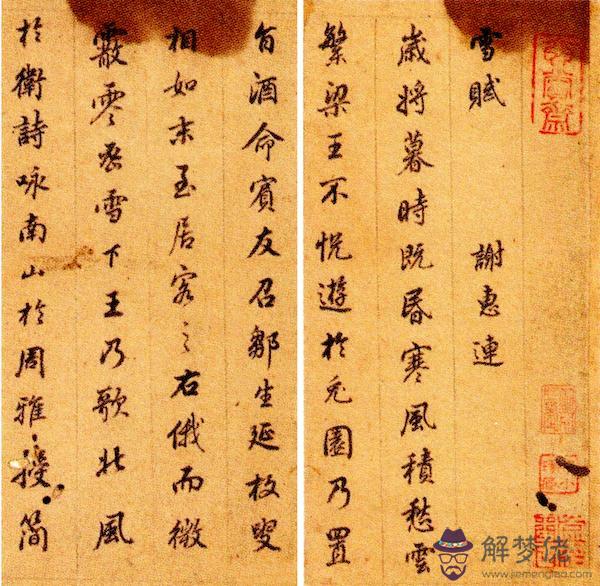 雪賦 謝惠連
歲將暮時既昏寒風積愁雲
繁梁王不悅遊於兔園乃置
旨酒命賓友召鄒生延枚叟
相如末至居客之右俄而微
霰零密雪下王乃歌北風
於衛詩咏南山於周雅授簡
解梦佬
www.jiemenglao.com